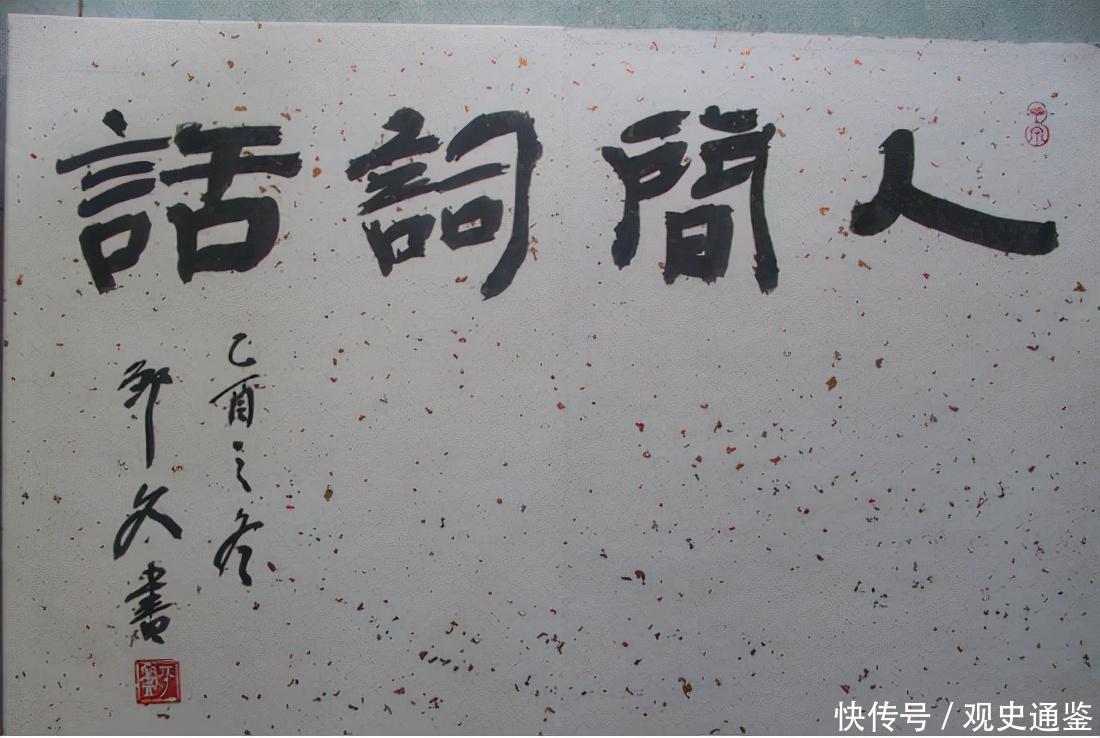 人間詞話
乙酉之冬
邹久書
快传号/观史通鉴